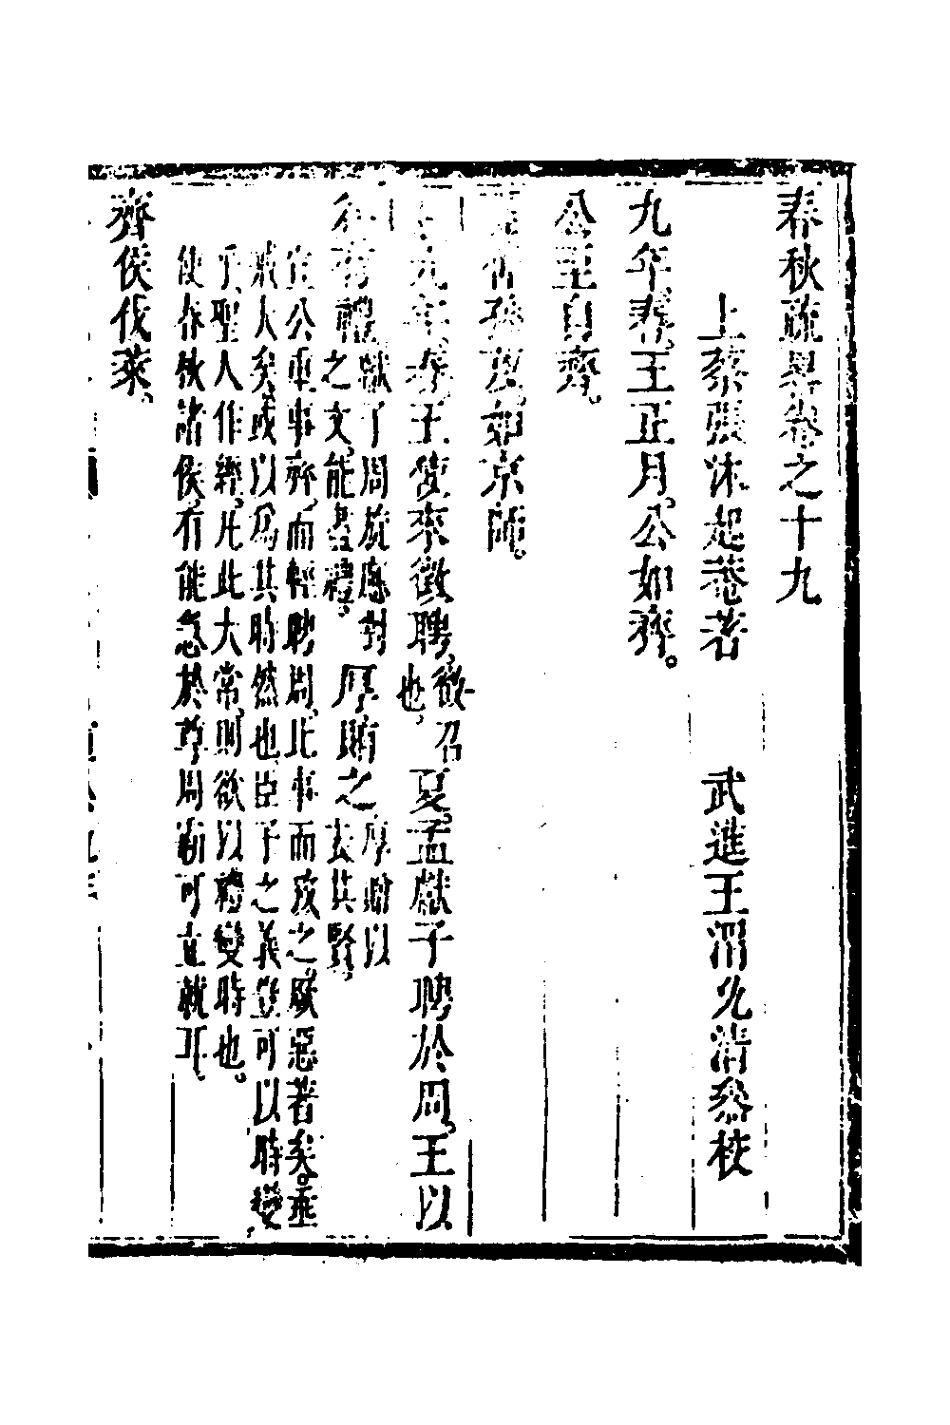 春秋疏畧卷之十九
上蔡張沐起菴著　武進王渭允清叅校
九年春王正月公如齊。
公至自齊。
夏仲孫蔑如京師。
九年春王使來徵聘徵召也夏孟獻子聘於周王以
有禮獻子周旋應對之文能盡禮厚賄之厚賄以去其賢
宣公重事齊而輕聘周此事而孜之厥惡著矣垂
戒大矣或以爲其時然也臣子之義豈可以時變
乎聖人作經凡此大常則欲以禮變時也。
使春秋諸侯有能急於尊周霸可立就耳
齊侯伐萊